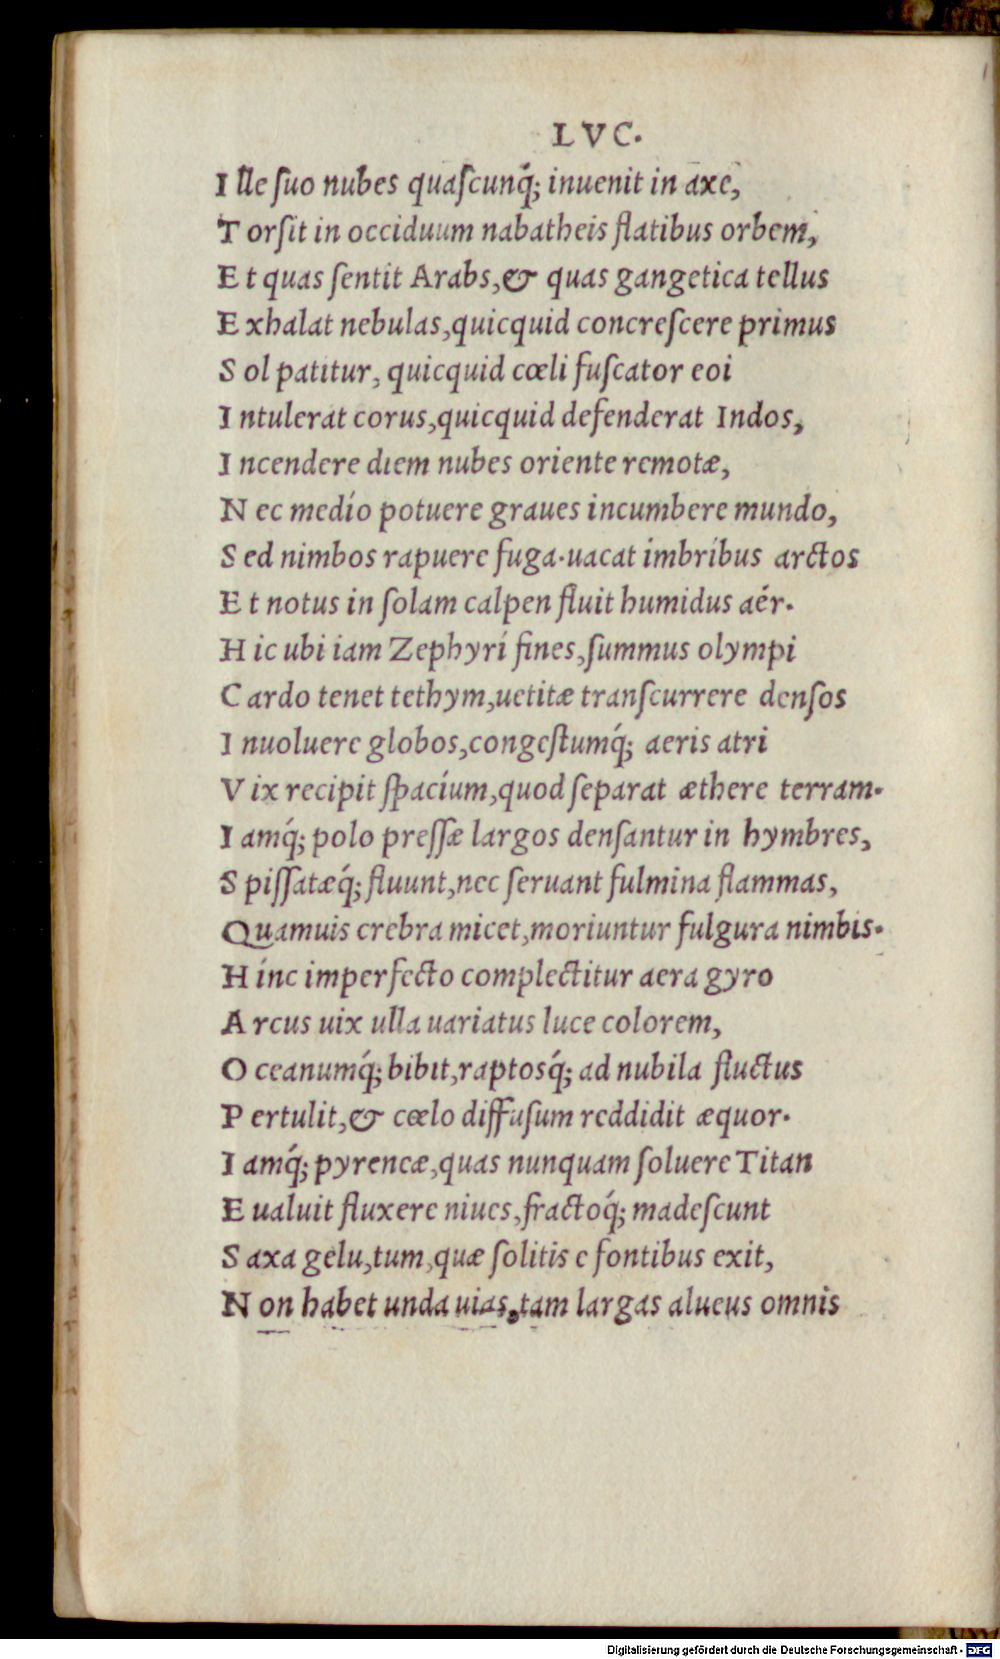 LVC.
I lle ſuo nubes quaſcunq́; inuenit in axe,
T orſit in occiduum nabatheis flatibus orbem,
E t quas ſentit Arabs,& quas gangetica tellus
E xhalat nebulas,quicquid concreſcere primus
S ol patitur, quicquid cœli fuſcator eoi
I ntulerat corus,quicquid defenderat Indos,
I ncendere diem nubes oriente remotæ,
N ec medio potuere graues incumbere mundo,
S ed nimbos rapuere fuga.uacat imbribus arctos
E t notus in ſolam calpen fluit humidus aér.
H ic ubi iam Zephyri fines,ſummus olympi
C ardo tenet tethym,uetitæ tranſcurrere denſos
I nuoluere globos,congeſtumq́; aeris atri
V ix recipit ſpacium,quod ſeparat æthere terram.
I amq́; polo preſſæ largos denſantur in hymbres,
S piſſatæq́; fluunt,nec ſeruant fulmina flammas,
Quamuis crebra micet,moriuntur fulgura nimbis.
H inc imperfecto complectitur aera gyro
A rcus uix ulla uariatus luce colorem,
O ceanumq́; bibit,raptosq́; ad nubila fluctus
P ertulit,& cœlo diffuſum reddidit æquor.
I amq́; pyreneæ,quas nunquam ſoluere Titan
E ualuit fluxere niues,fractoq́; madeſcunt
S axa gelu,tum,quæ ſolitis e fontibus exit,
N on habet unda uias,tam largas alueus omnis
Digitalisierung gefördert durch die Deutsche Forschungsgemeinschaft - DFG